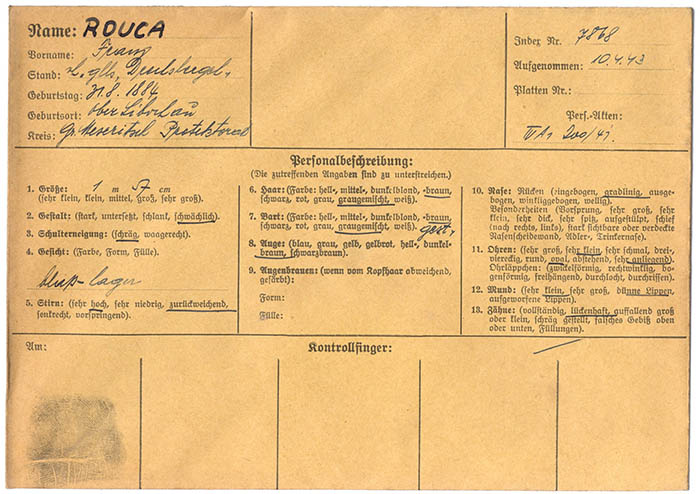 Name: ROUCA
Vorname: Franz
Stand:
Geburtstag: 31.8.1884
Geburtsort: Ober Libochau
Kreis: Gr. Meseritsch Protektorat
Index Nr. 7868
Aufgenommen: 10.4.43
Platten Nr.
Pers.-Akten:
200/41.
Personalbeschreibung:
(Die zutreffenden Angaben sind zu unterstreichen.)
1. Größe: 1 m 57 cm
(sehr klein, klein, mittel, groß, sehr groß).
2. Gestalt: (stark, untersetzt, schlank, schwächlich).
3. Schulterneigung: (schräg, waagerecht).
4. Gesicht: (Farbe, Form, Fülle).
blaß-
5. Stirn: (sehr hoch, sehr niedrig, zurückweichend,
senkrecht, vorspringend).
6. Haar: (Farbe: hell-, mittel-, dunkelblond, -braun,
schwarz, rot, grau, graugemischt, weiß).
7. Bart: (Farbe: hell-, mittel-, dunkelblond, -braun,
schwarz, rot, grau, graugemischt, weiß). gest.
8. Auge: (blau, grau, gelb, gelbrot, hell-, dunkel-
braun, schwarzbraun).
9. Augenbrauen: (wenn vom Kopfhaar abweichend,
gefärbt):
Form:
Fülle:
10. Nase: Rücken (eingebogen, gradlinig, ausge-
bogen, winkliggebogen, wellig).
Besonderheiten (Vorsprung, sehr groß, sehr
klein, sehr dick, sehr spitz, ausgestülpt, schief
(nach rechts, links), stark sichtbare oder verdeckte
Nasenscheidewand, Adler-, Trinkernase).
11. Ohren: (sehr groß, sehr klein, sehr schmal, drei-,
viereckig, rund, oval, abstehend, sehr anliegend)
Ohrläppchen: (zwickelförmig, rechtwinklig, bo-
genförmig, freihängend, durchlocht, durchrissen).
12. Mund: (sehr klein, sehr groß, dünne Lippen,
aufgeworfene Lippen).
13. Zähne: (vollständig, lückenhaft, auffallend groß
oder klein, schräg gestellt, falsches Gebiß oben
oder unten, Füllungen).
Am:
Kontrollfinger: